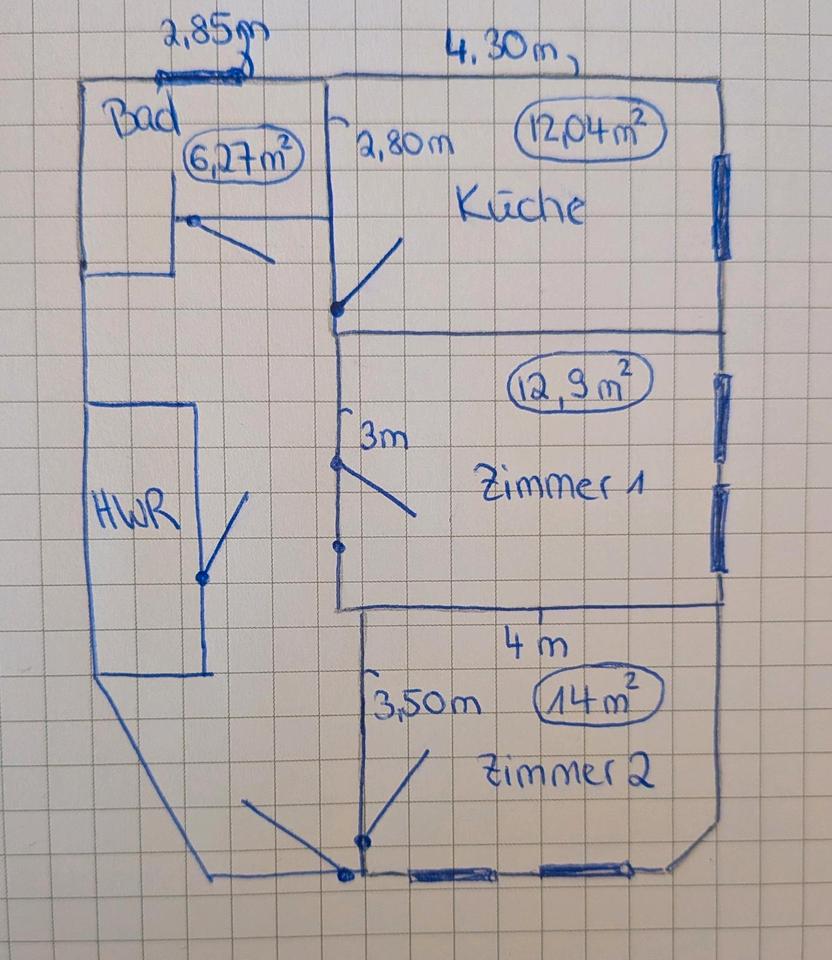 2,85m
4,30m
Bad
6,27m²
2,80m
12,04m²
Küche
12,9m²
3m
Zimmer 1
HWR
4m
3,50m
14m²
Zimmer 2